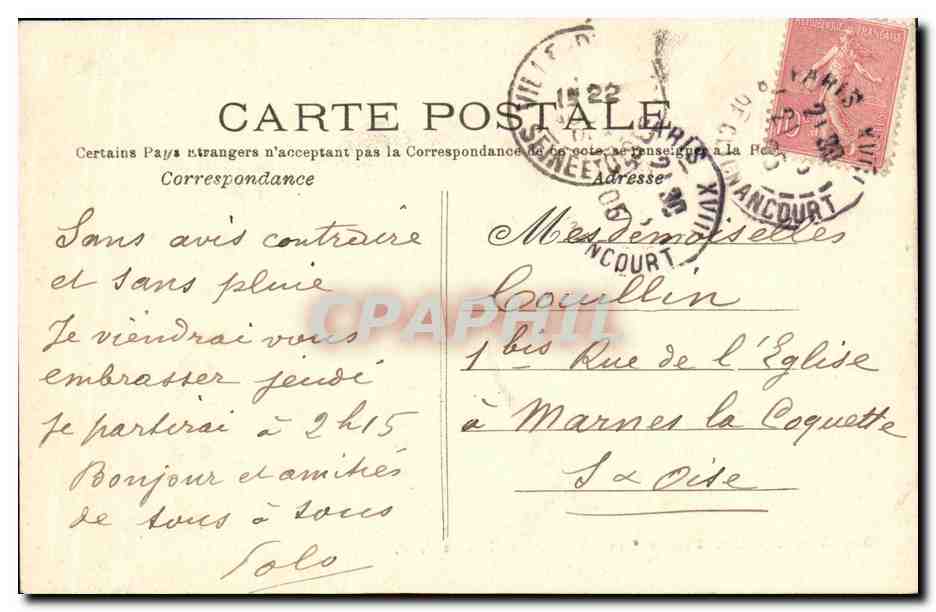 CARTE POSTALE
Certains Pays étrangers n'acceptant pas la Correspondance de ce côté, se renseigner à la Poste
Correspondance
Adresse
Sans avis contraire
et sans pluie
Je viendrai vous
embrasser jeudi
je partirai à 2h15
Bonjour et amitiés
de tous à tous
Lolo
Mesdemoiselles
Couillin
1 bis Rue de l'Eglise
à Marnes la Coquette
S & Oise
VILLE D
SEINE ET OISE
22
PARIS XVIII
21 30
NCOURT
PARIS XVIII
21 30
R. DE CLIGNANCOURT
FRANÇAISE
10
CPAPHIL